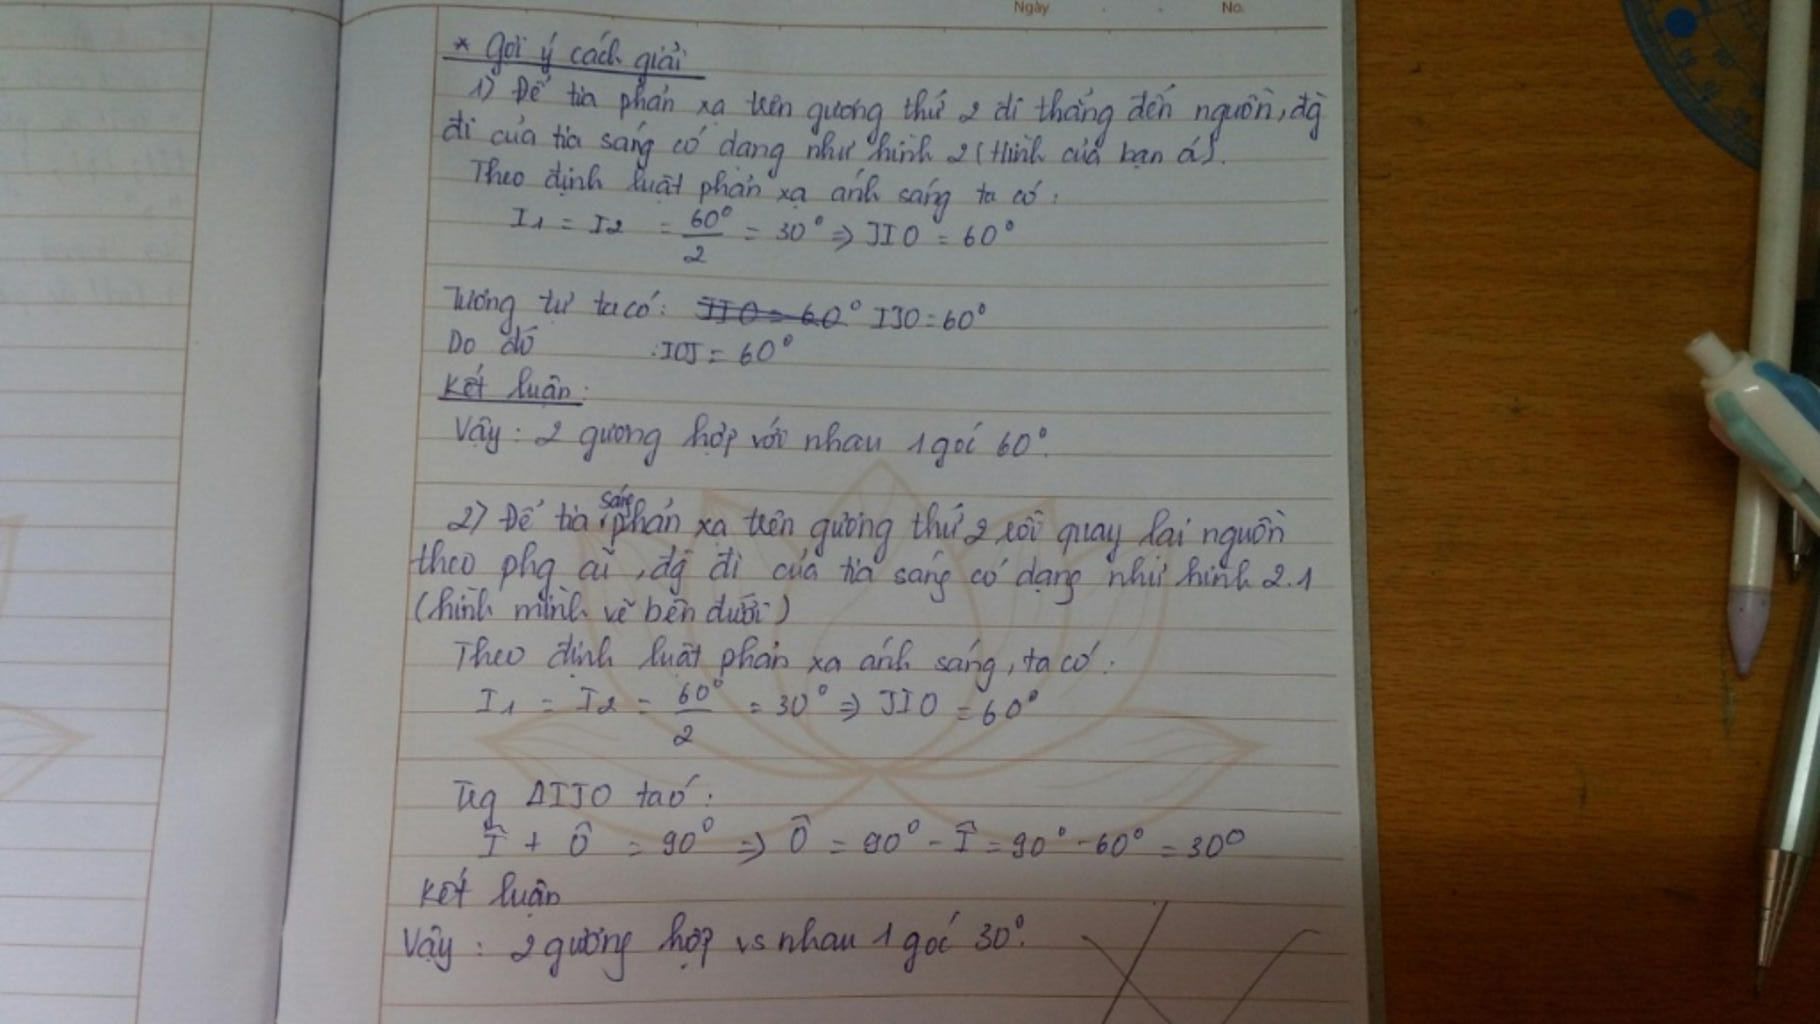 Ngày . . No.
* Gợi ý cách giải
1) Để tia phản xạ trên gương thứ 2 đi thẳng đến nguồn, đg
đi của tia sáng có dạng như hình 2 (Hình của bạn á).
Theo định luật phản xạ ánh sáng ta có:
I1 = I2 = 60°/2 = 30° => JIO = 60°
Tương tự ta có: JIO = 60° IJO = 60°
Do đó : IOJ = 60°
Kết luận:
Vậy : 2 gương hợp với nhau 1 góc 60°.
2) Để tia sáng phản xạ trên gương thứ 2 rồi quay lại nguồn
theo phg cũ, đg đi của tia sáng có dạng như hình 2.1
(hình mình vẽ bên dưới)
Theo định luật phản xạ ánh sáng, ta có:
I1 = I2 = 60°/2 = 30° => JIO = 60°
Trg ΔIJO ta có:
Î + Ô = 90° => Ô = 90° - Î = 90° - 60° = 30°
Kết luận
Vậy : 2 gương hợp vs nhau 1 góc 30°.